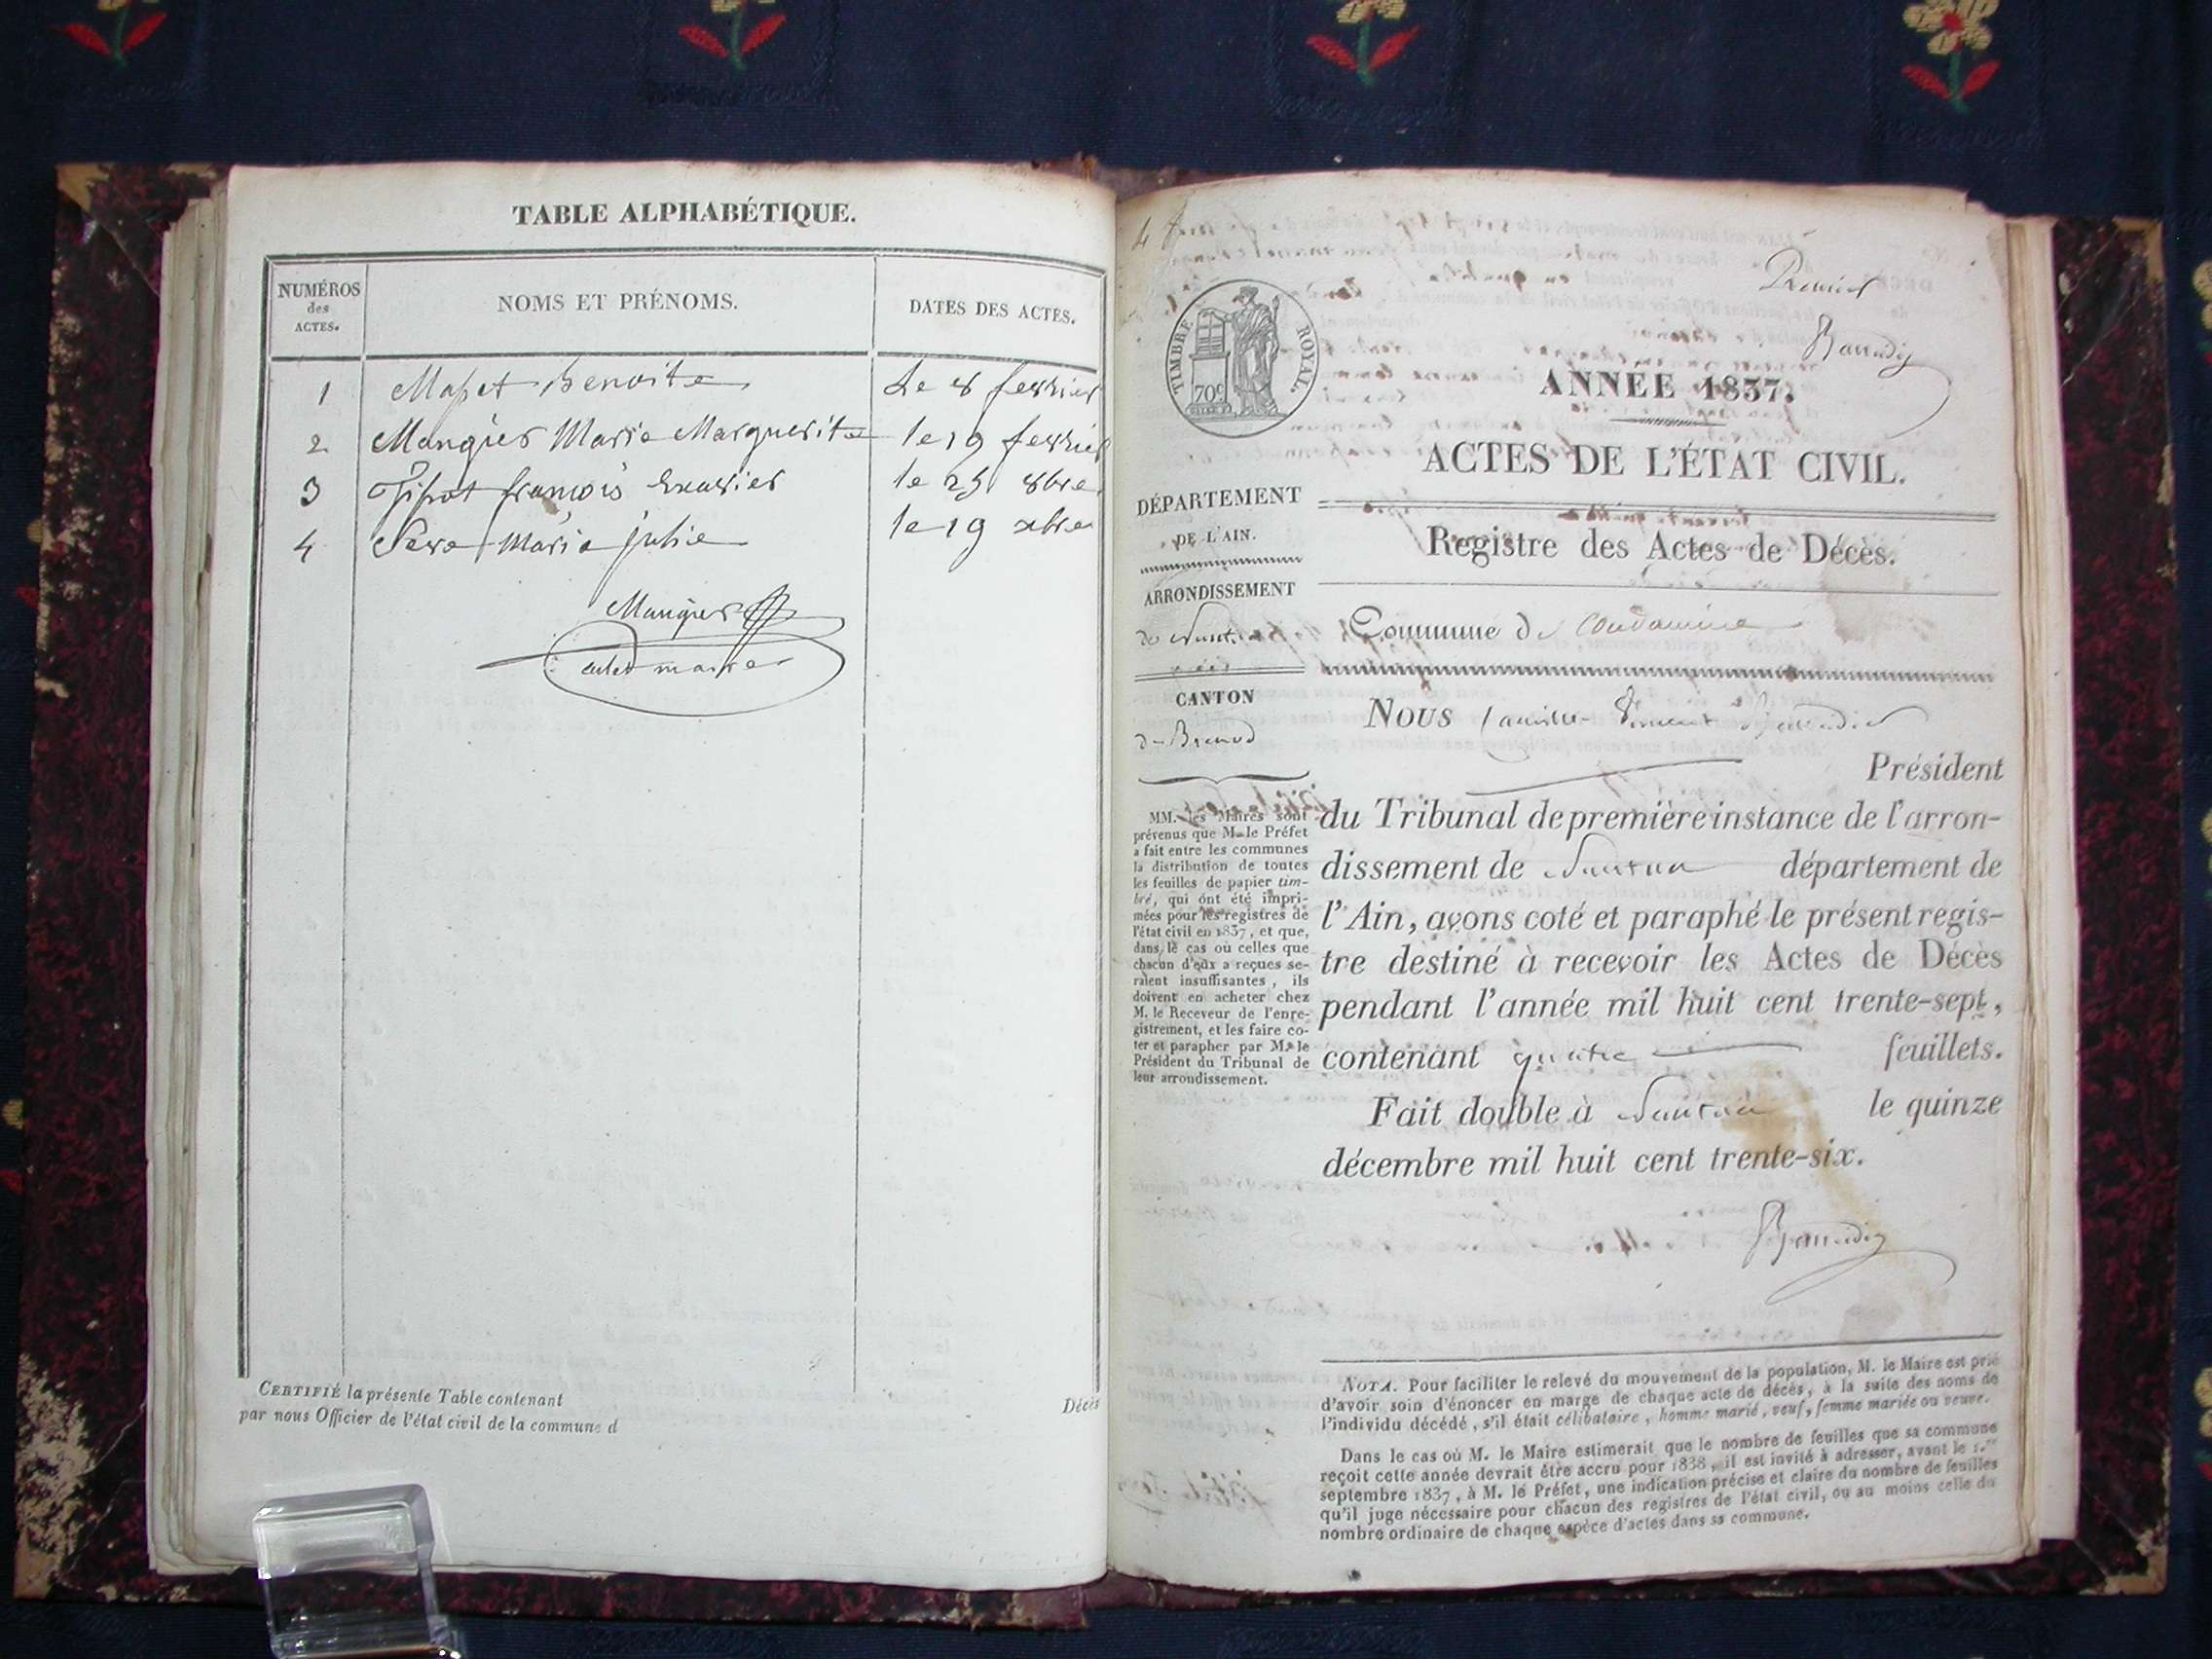 TABLE ALPHABÉTIQUE.
NUMÉROS
des
ACTES.
NOMS ET PRÉNOMS.
DATES DES ACTES.
1 Benoite Le 8 fevrier
2 Mangier Marie Marguerite le 19 fevrier
3 françois Exavier le 25 8bre
4 Marie julie le 19 xbre
Mangier
maire
CERTIFIÉ la présente Table contenant Décès
par nous Officier de l'état civil de la commune d
4
Premier
TIMBRE ROYAL.
70c
ANNÉE 1837.
ACTES DE L'ÉTAT CIVIL.
DÉPARTEMENT
DE L'AIN.
ARRONDISSEMENT
de Nantua
CANTON
de Brenod
MM. les Maires sont
prévenus que M. le Préfet
a fait entre les communes
la distribution de toutes
les feuilles de papier tim-
bré, qui ont été impri-
mées pour les registres de
l'état civil en 1837, et que,
dans le cas où celles que
chacun d'eux a reçues se-
raient insuffisantes, ils
doivent en acheter chez
M. le Receveur de l'enre-
gistrement, et les faire co-
ter et parapher par M. le
Président du Tribunal de
leur arrondissement.
Registre des Actes de Décès.
Commune de Condamine
Nous Camille Vincent
Président
du Tribunal de première instance de l'arron-
dissement de Nantua département de
l'Ain, avons coté et paraphé le présent regis-
tre destiné à recevoir les Actes de Décès
pendant l'année mil huit cent trente-sept,
contenant quatre feuillets.
Fait double à Nantua le quinze
décembre mil huit cent trente-six.
NOTA. Pour faciliter le relevé du mouvement de la population, M. le Maire est prié
d'avoir soin d'énoncer en marge de chaque acte de décès, à la suite des noms de
l'individu décédé, s'il était célibataire, homme marié, veuf, femme mariée ou veuve.
Dans le cas où M. le Maire estimerait que le nombre de feuilles que sa commune
reçoit cette année devrait être accru pour 1838, il est invité à adresser, avant le 1.er
septembre 1837, à M. le Préfet, une indication précise et claire du nombre de feuilles
qu'il juge nécessaire pour chacun des registres de l'état civil, ou au moins celle du
nombre ordinaire de chaque espèce d'actes dans sa commune.